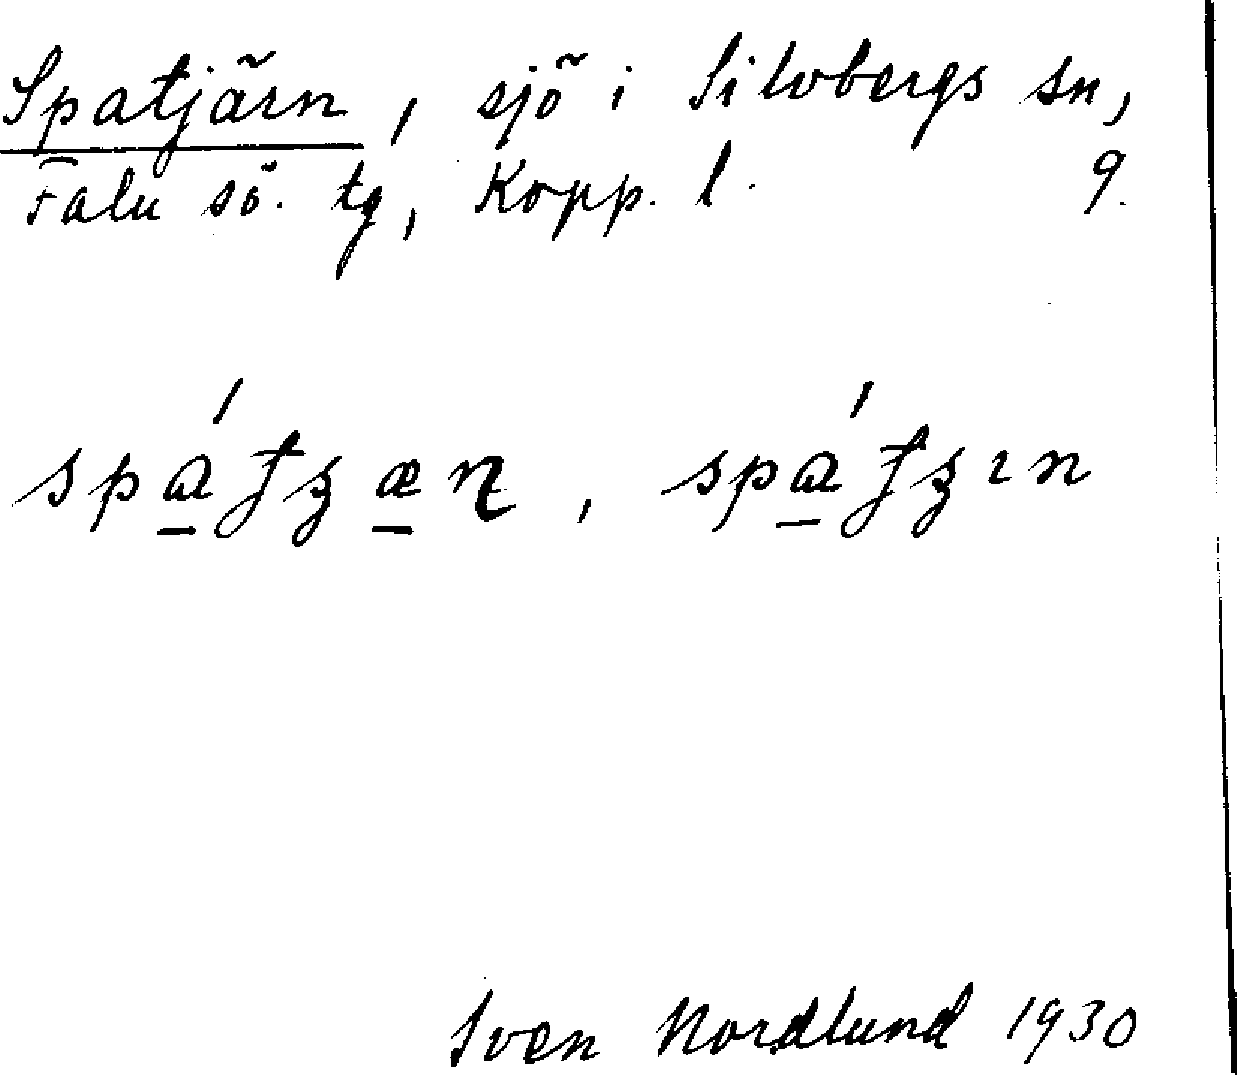 Spatjärn, sjö i Silvbergs sn,
Falu sö. tg, Kopp. l. 9.
Sven Nordlund 1930